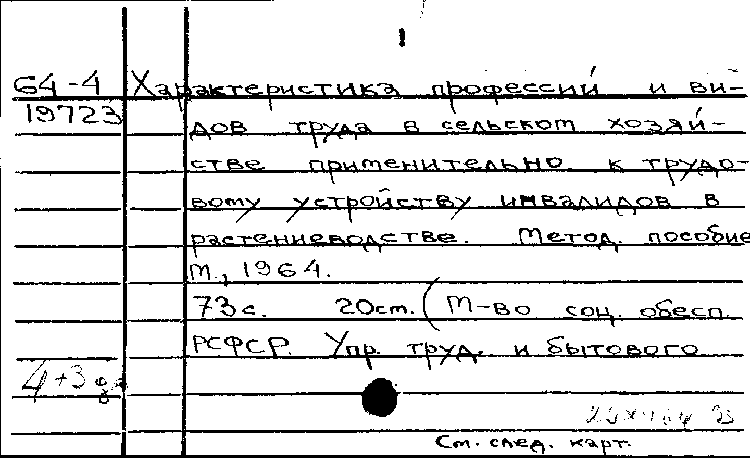 64-4 Характеристика профессий и ви-
19723 дов труда в сельском хозяй-
стве применительно к трудо-
вому устройству инвалидов в
растениеводстве. Метод. пособие
М., 1964.
73с. 20см. (М-во соц. обесп.
РСФСР. Упр. труд. и бытового
4+3
См. след. карт.